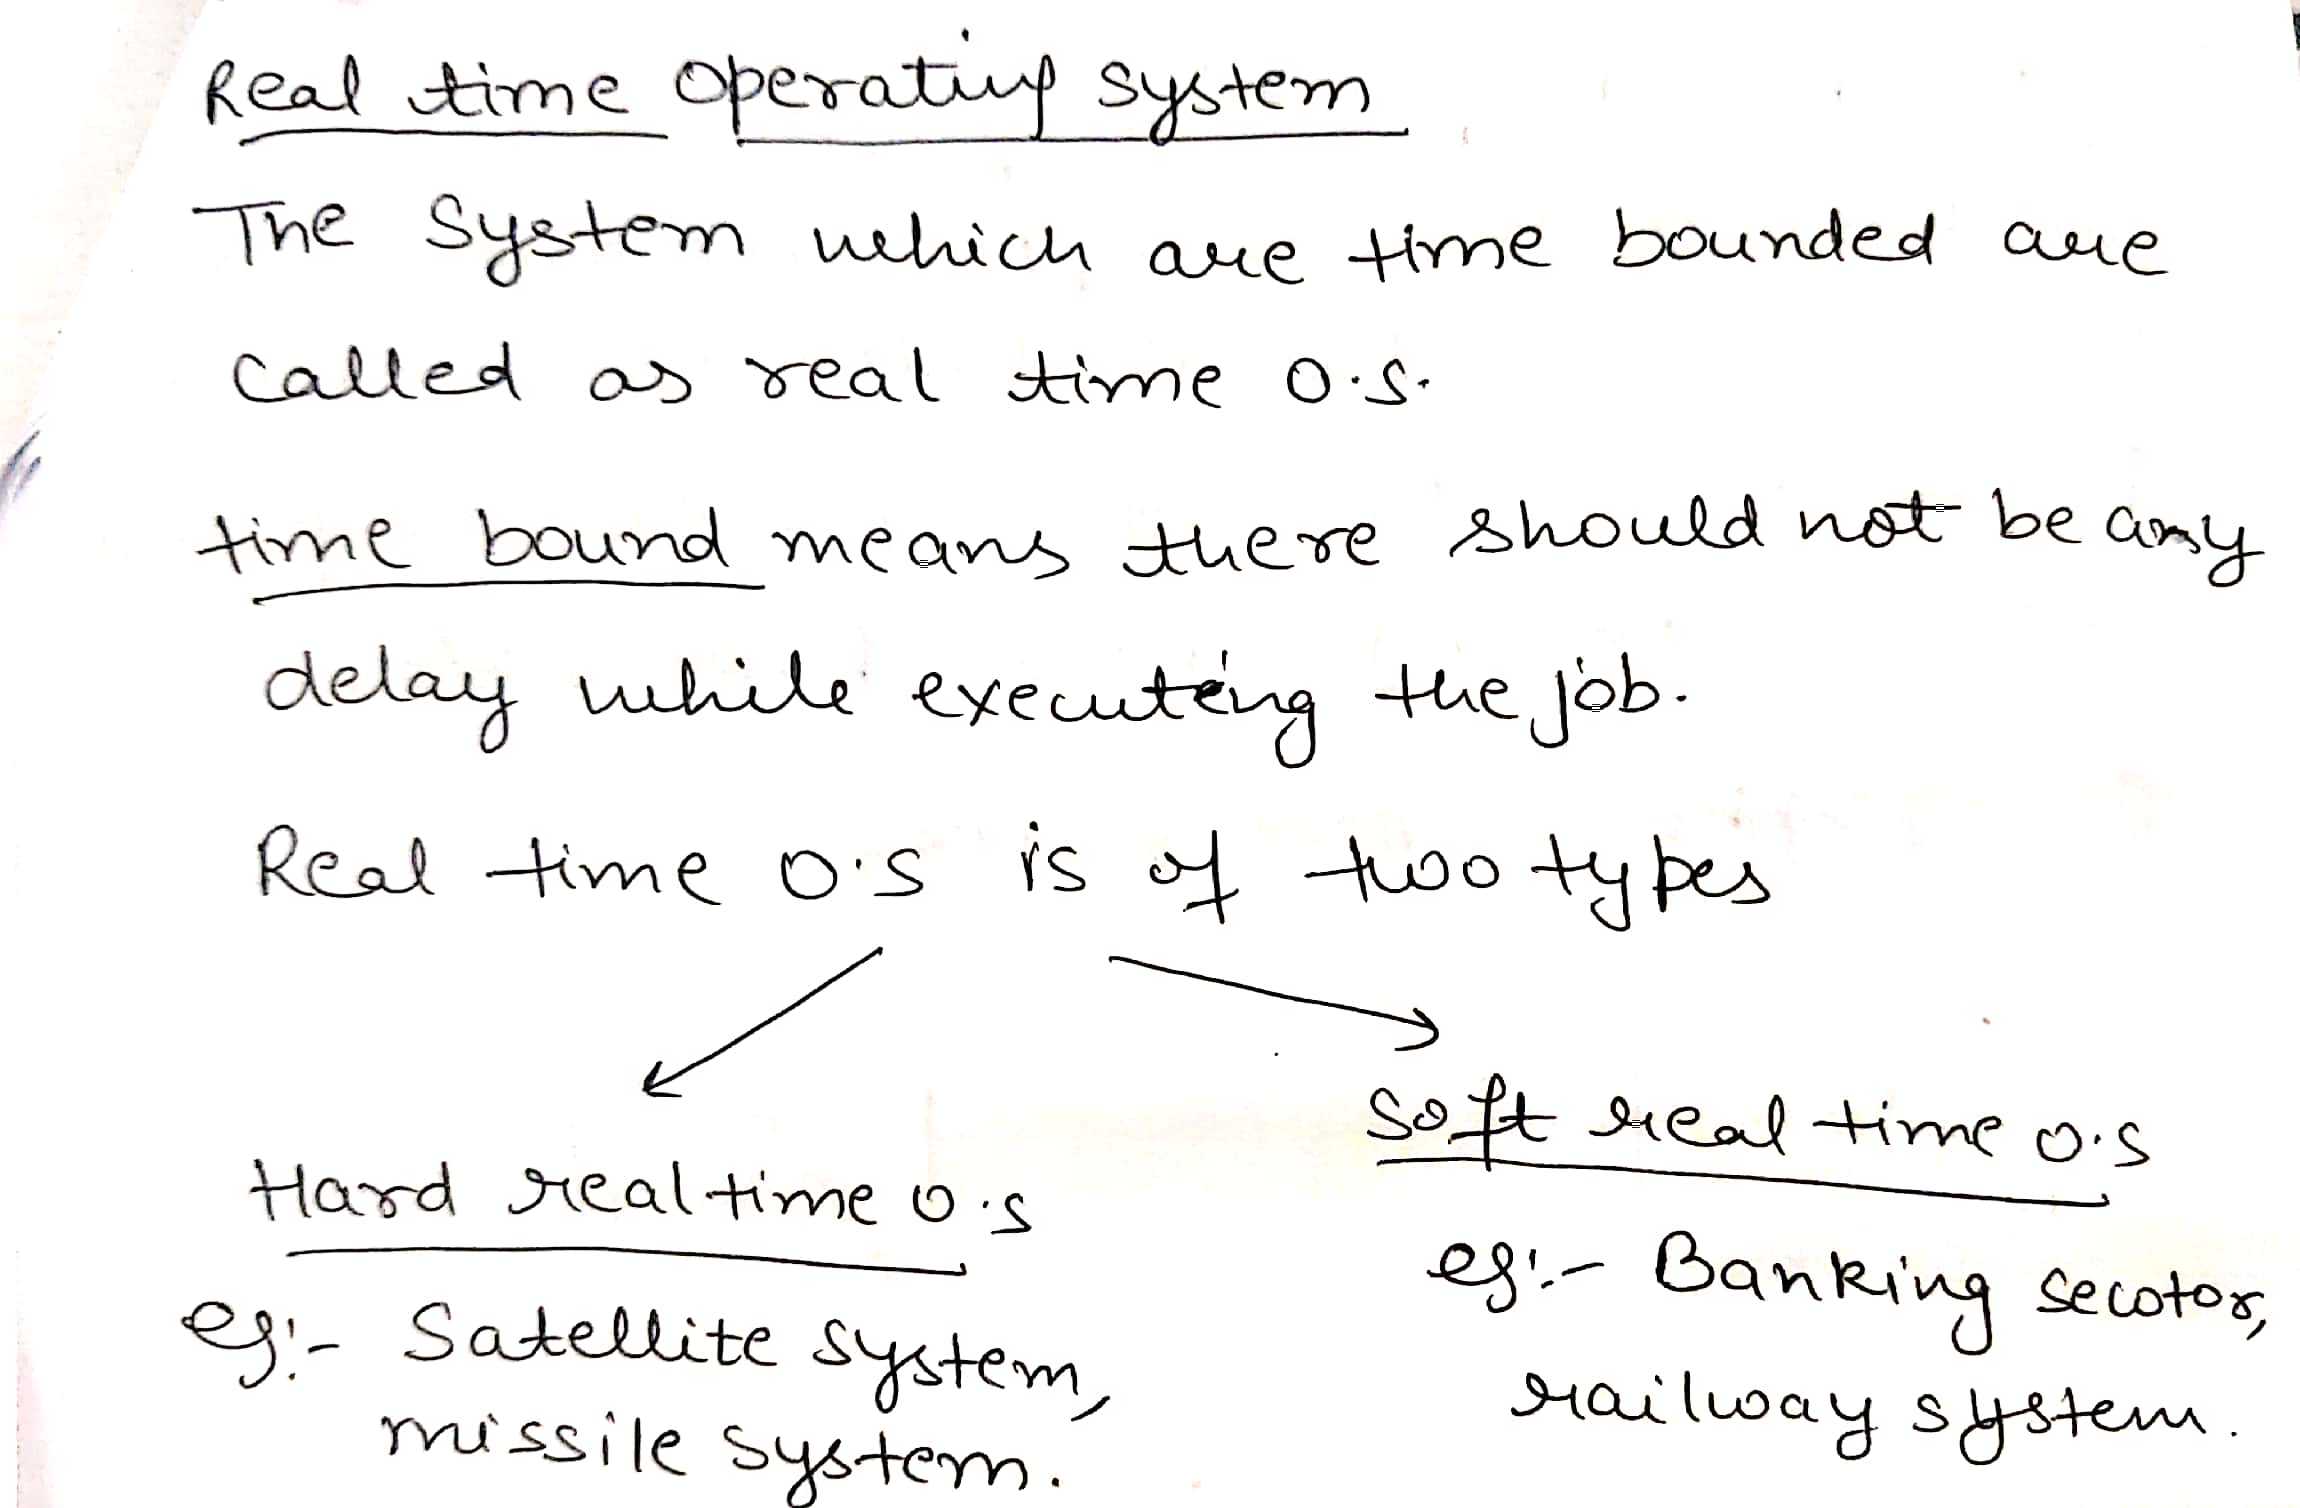 Real time operating system
The System which are time bounded are
called as real time O.S.
time bound means there should not be any
delay while executing the job.
Real time O.S is of two types
Hard real time O.S
eg:- Satellite system,
missile system.
Soft real time O.S
eg:- Banking secotor,
railway system.